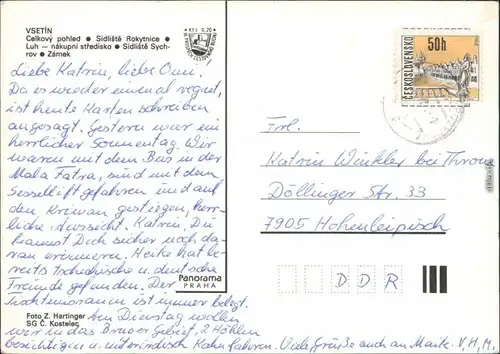 VSETÍN
Celkový pohled ● Sídliště Rokytnice ●
Luh — nákupní středisko ● Sídliště Sych-
rov ● Zámek
Liebe Katrin, liebe Omi.
Da es wieder einmal regnet,
ist heute Karten schreiben
angesagt. Gestern war ein
herrlicher Sonnentag. Wir
waren mit dem Bus in der
Mala Fatra, sind mit dem
Sessellift gefahren und auf
den Kriwan gestiegen, herr-
liche Aussicht. Katrin, Du
kannst Dich sicher noch da-
ran erinnern. Heike hat be-
reits tschechische u. deutsche
Freunde gefunden. Der
Tischtennisraum ist immer belegt.
Am Dienstag wollen
wir in das Brunoer Gebiet, 2 Höhlen
besichtigen u. unterirdisch Kahn fahren. Viele Grüße auch an Mank. V, H, M,
Panorama
PRAHA
Foto Z. Hartinger
SG C. Kostelec
ČESKOSLOVENSKO
50h
Frl.
Katrin Winkler bei Throne
Döllinger Str. 33
7905 Hohenleipisch
DDR